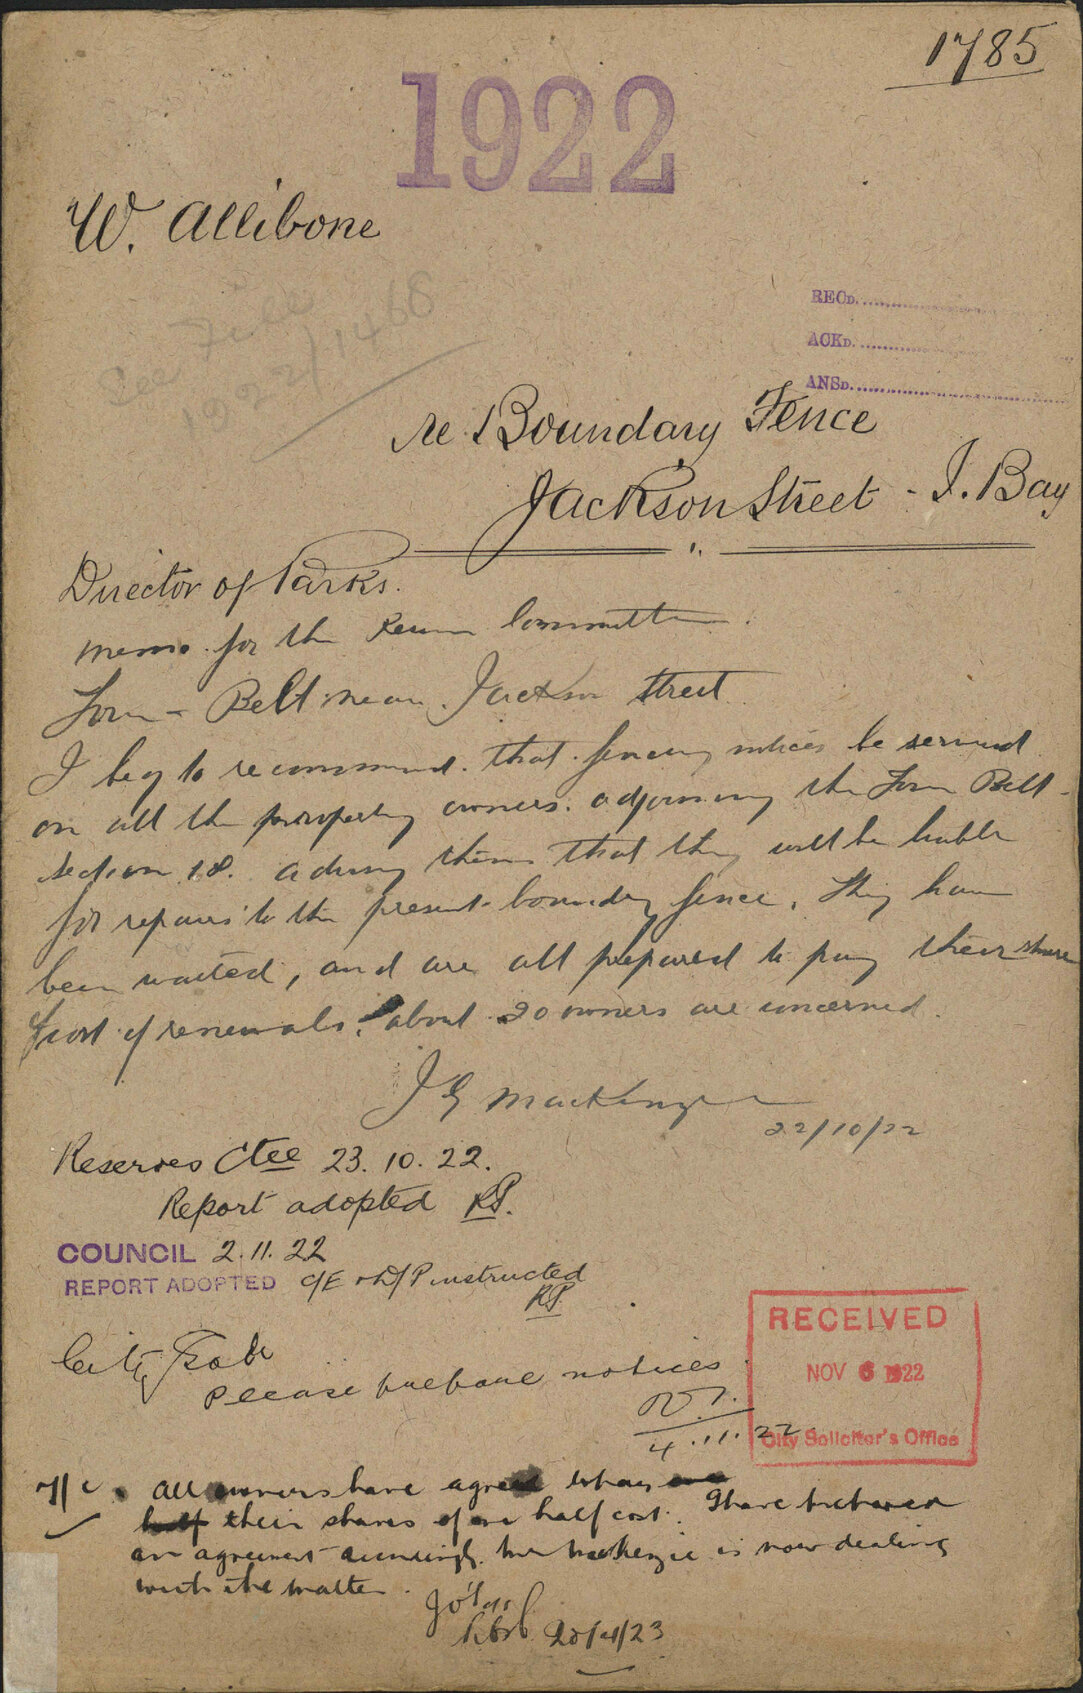 1785
1922
W. Allibone
See File
1922/1468
RECD.
ACKD.
ANSD.
re Boundary Fence
Jackson Street - I. Bay
Director of Parks.
Memo. for the Committee.
Town - Belt near Jackson Street
I beg to recommend. that fencing notices be served
on all the property owners. adjoining the Town Belt -
section 18. advising them that they will be liable
for repairs to the present boundary fence. They have
been waited, and are all prepared to pay their share
of cost of renewals. about 20 owners are concerned.
J G MacKenzie
22/10/22
Reserves Ctee 23.10.22.
Report adopted RP.
COUNCIL 2.11.22
REPORT ADOPTED C/E & D/P instructed
RP
City Solr
Please prepare notices
4.11.22
RECEIVED
NOV 6 1922
City Solicitor's Office
T/C. All owners have agreed to pay
half their shares of one half cost. I have prepared
an agreement accordingly. Mr MacKenzie is now dealing
with the matter.
20/4/23